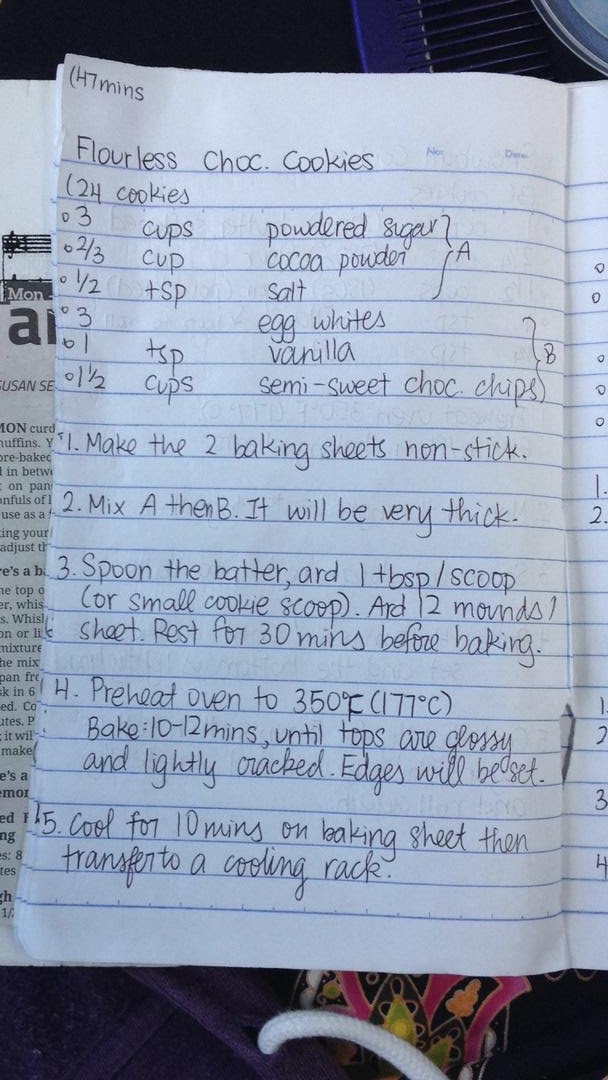 (47mins
No.
Date
Flourless Choc. Cookies
(24 cookies
o 3 cups powdered sugar
o 2/3 cup cocoa powder A
o 1/2 tsp salt
o 3 egg whites
o 1 tsp vanilla B
o 1 1/2 cups semi-sweet choc. chips
1. Make the 2 baking sheets non-stick.
2. Mix A then B. It will be very thick.
3. Spoon the batter, ard 1 tbsp/scoop
(or small cookie scoop). Ard 12 mounds/
sheet. Rest for 30 mins before baking.
4. Preheat oven to 350°F (177°C)
Bake: 10-12mins, until tops are glossy
and lightly cracked. Edges will be set.
5. Cool for 10 mins on baking sheet then
transfer to a cooling rack.
Mon
SUSAN SE
MON curd
nuffins. Y
ore-baked
l in betwe
on pan
onfuls of l
use as a
king your
adjust th
re's a b
he top o
er, whis
s. Whis
on or li
mixture
he mix
pan fr
sk in 6
ed. Co
utes. P
it wil
make
1.
2.
1.
2
3
4